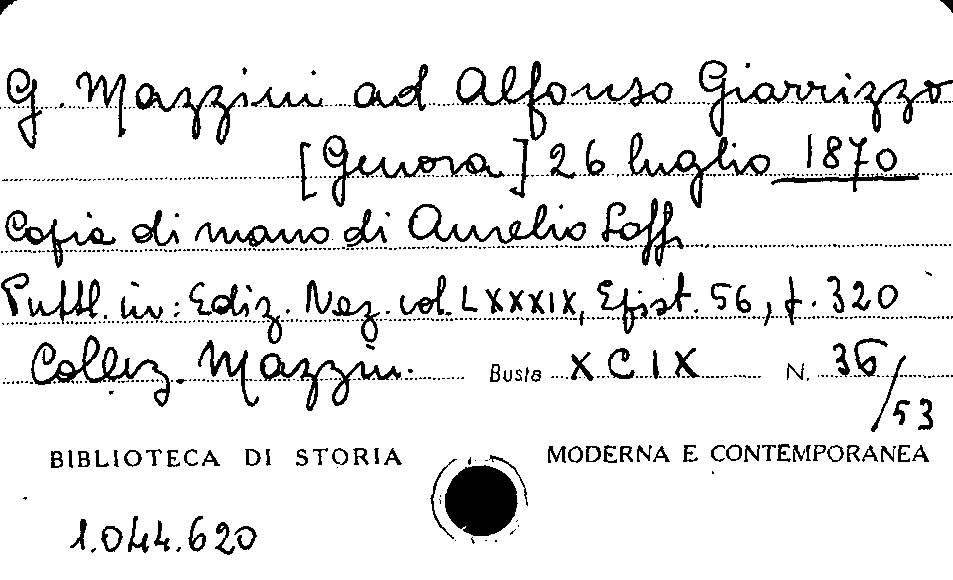 G. Mazzini ad Alfonso Giarrizzo
[Genova] 26 luglio 1870
Copia di mano di Aurelio Saffi
Pubbl. in: Ediz. Naz. vol. LXXXIX, Epist. 56, p. 320
Collez. Mazzini. Busta XCIX N. 36/53
BIBLIOTECA DI STORIA MODERNA E CONTEMPORANEA
1.044.620